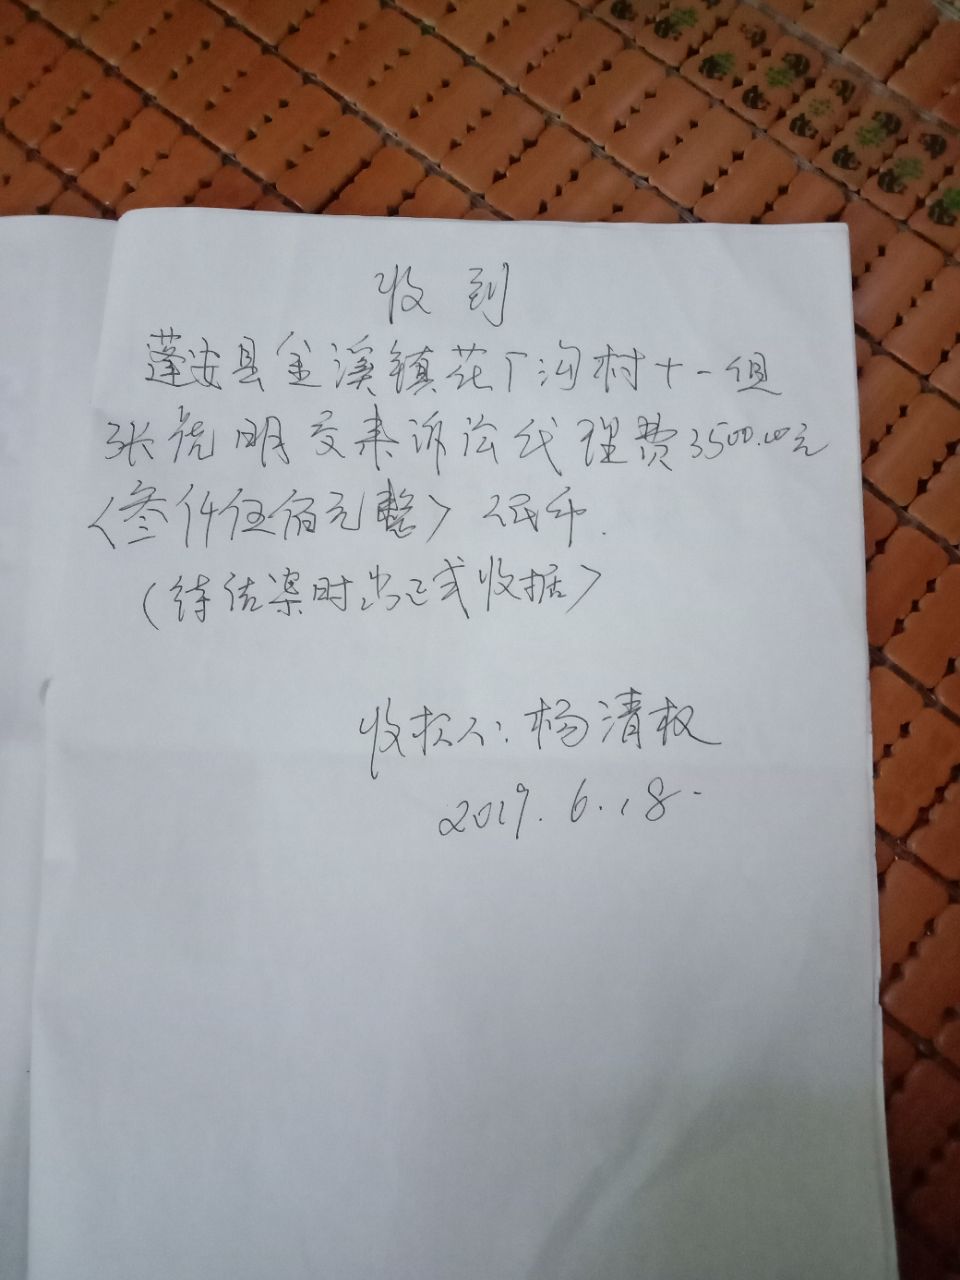 收到
蓬安县金溪镇花厂沟村十一组
张 明交来诉讼代理费3500.00元
（叁仟伍佰元整）人民币.
（待结案时出正式收据）
收款人：杨清权
2019.6.18.